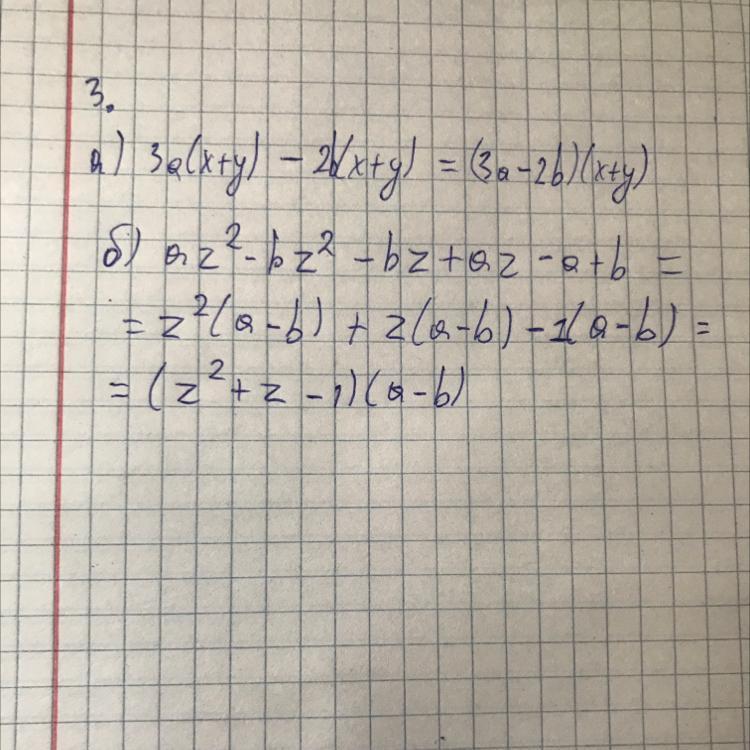 3.
а) 3a(x+y) - 2b(x+y) = (3a-2b)(x+y)
б) az² - bz² - bz + az - a + b =
= z²(a-b) + z(a-b) - 1(a-b) =
= (z² + z - 1)(a-b)